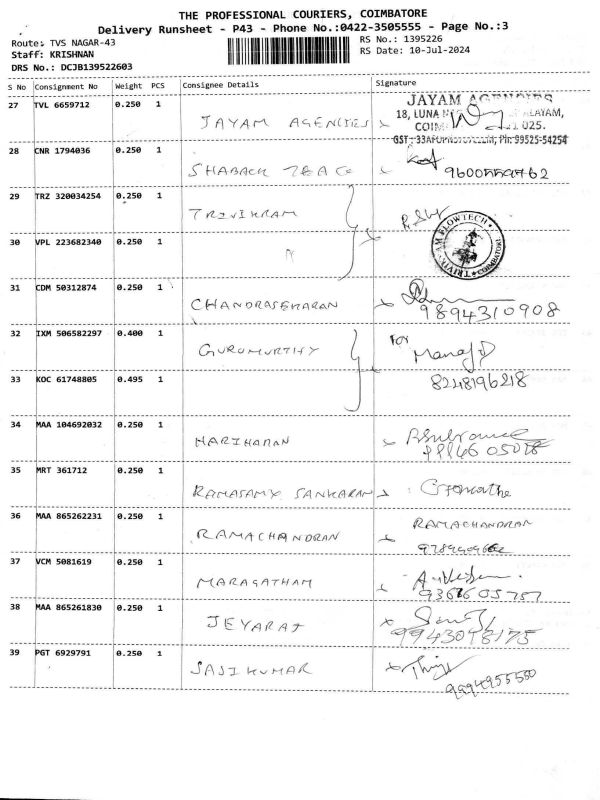 THE PROFESSIONAL COURIERS, COIMBATORE
Delivery Runsheet - P43 - Phone No.:0422-3505555 - Page No.:3
Route: TVS NAGAR-43 RS No.: 1395226
Staff: KRISHNAN RS Date: 10-Jul-2024
DRS No.: DCJB139522603
S No Consignment No Weight PCS Consignee Details Signature
27 TVL 6659712 0.250 1 JAYAM AGENCIES
JAYAM AGENCIES
18, LUNA
COIM 025.
28 CNR 1794036 0.250 1 SHABACK TEA Co 9600559762
29 TRZ 320034254 0.250 1 TRIVIKRAM
30 VPL 223682340 0.250 1 "
31 CDM 50312874 0.250 1 CHANDRASEKARAN 9894310908
32 IXM 506582297 0.400 1 GURUMURTHY For Manaj
33 KOC 61748805 0.495 1 8248196218
34 MAA 104692032 0.250 1 HARIHARAN
35 MRT 361712 0.250 1 RAMASAMY SANKARAN
36 MAA 865262231 0.250 1 RAMACHANDRAN RAMACHANDRAN
37 VCM 5081619 0.250 1 MARAGATHAM
38 MAA 865261830 0.250 1 JEYARAJ 9943048175
39 PGT 6929791 0.250 1 SASIKUMAR 9894955550